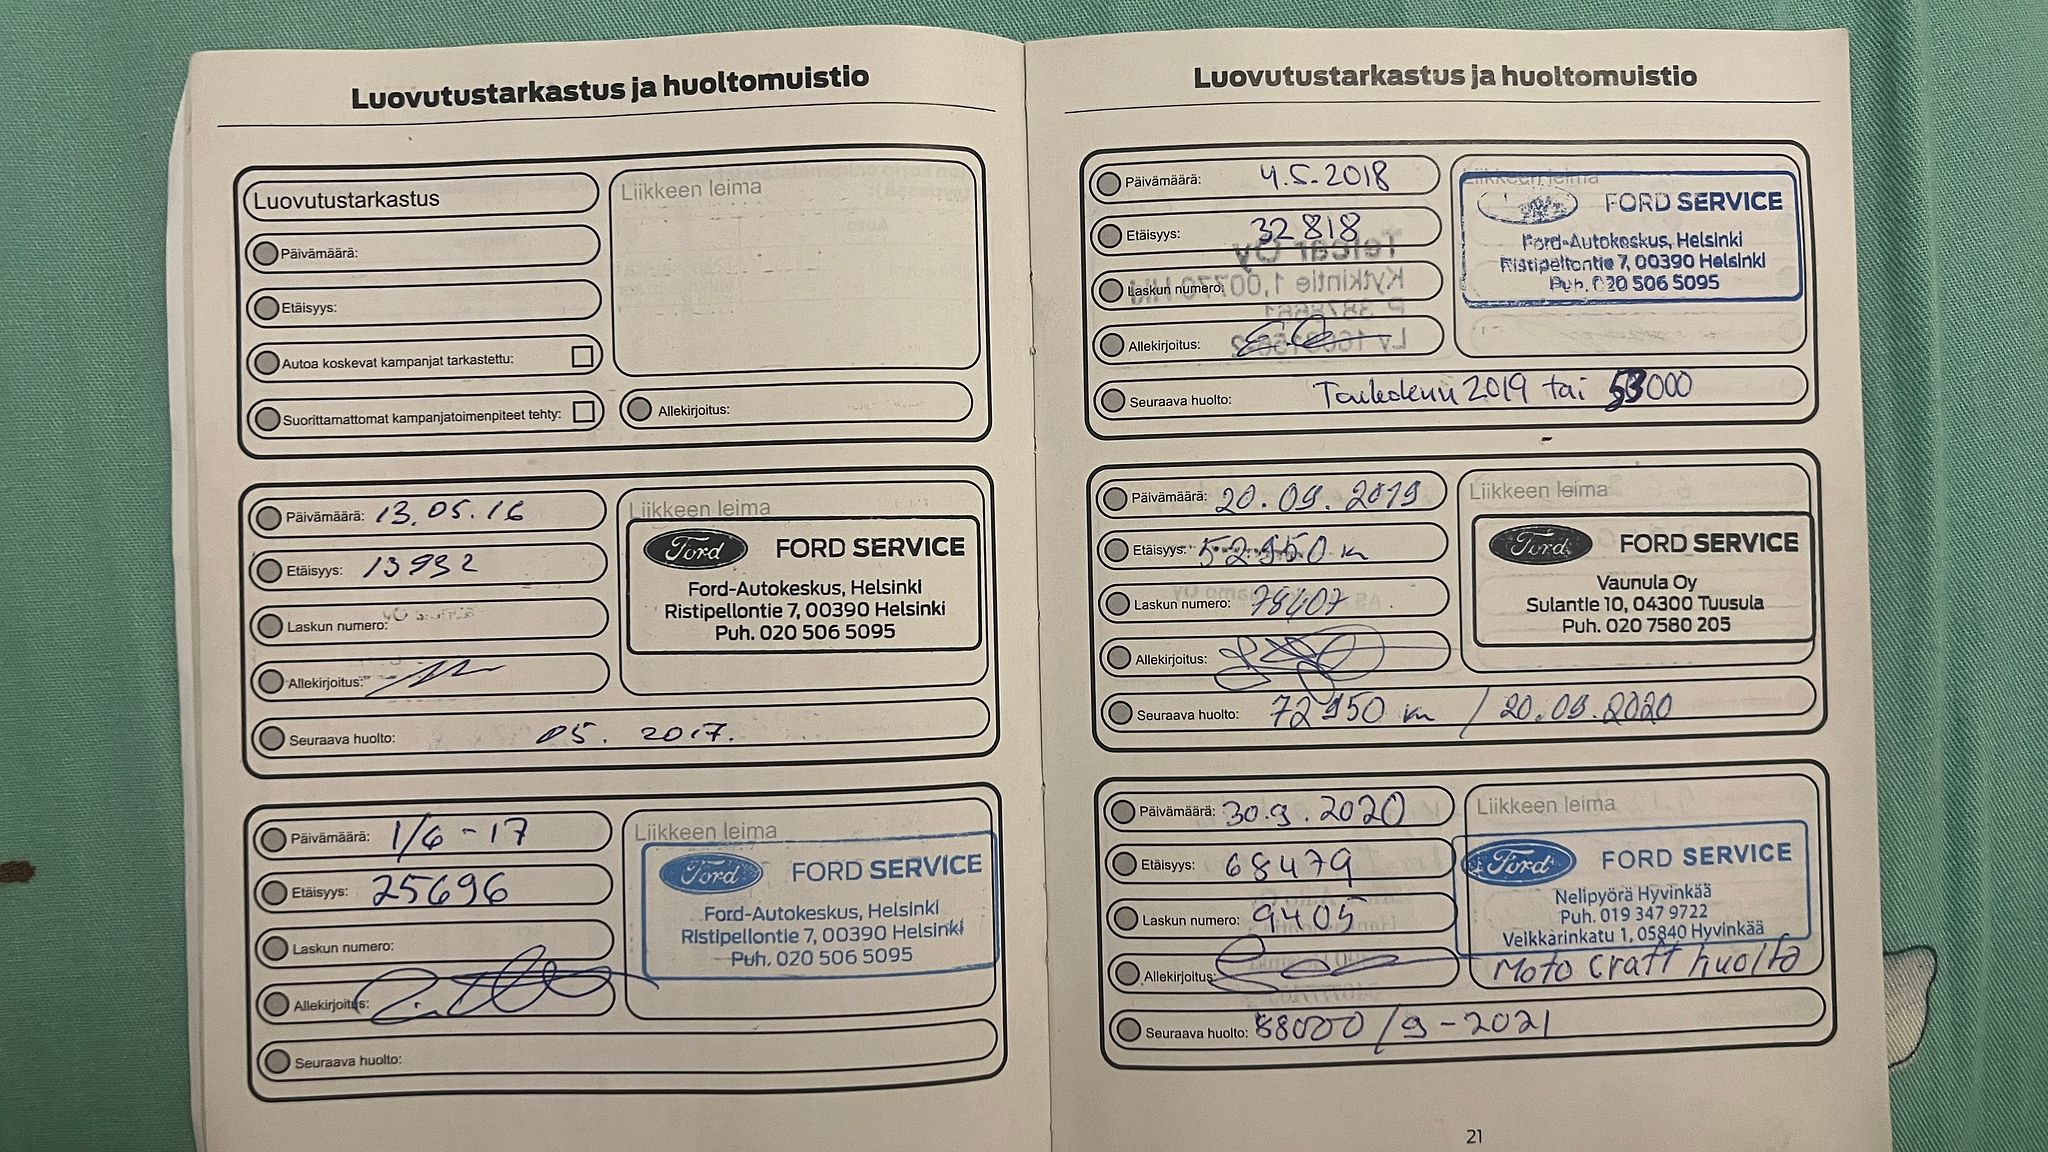 Luovutustarkastus ja huoltomuistio
Luovutustarkastus
Liikkeen leima
Päivämäärä:
Etäisyys:
Autoa koskevat kampanjat tarkastettu:
Suorittamattomat kampanjatoimenpiteet tehty:
Allekirjoitus:
Päivämäärä: 13.05.16
Etäisyys: 13992
Laskun numero:
Allekirjoitus:
Seuraava huolto: 05. 2017.
Liikkeen leima
Ford FORD SERVICE
Ford-Autokeskus, Helsinki
Ristipellontie 7, 00390 Helsinki
Puh. 020 506 5095
Päivämäärä: 1/6 - 17
Etäisyys: 25696
Laskun numero:
Allekirjoitus:
Seuraava huolto:
Liikkeen leima
Ford FORD SERVICE
Ford-Autokeskus, Helsinki
Ristipellontie 7, 00390 Helsinki
Puh. 020 506 5095
Luovutustarkastus ja huoltomuistio
Päivämäärä: 4.5.2018
Etäisyys: 32818
Laskun numero:
Allekirjoitus:
Seuraava huolto: Toukokuu 2019 tai 53000
Liikkeen leima
FORD SERVICE
Ford-Autokeskus, Helsinki
Ristipellontie 7, 00390 Helsinki
Puh. 020 506 5095
Päivämäärä: 20.09.2019
Etäisyys: 52950 km
Laskun numero: 79407
Allekirjoitus:
Seuraava huolto: 72950 km / 20.09.2020
Liikkeen leima
Ford FORD SERVICE
Vaunula Oy
Sulantie 10, 04300 Tuusula
Puh. 020 7580 205
Päivämäärä: 30.9.2020
Etäisyys: 68479
Laskun numero: 9405
Allekirjoitus:
Seuraava huolto: 88000 / 9 - 2021
Liikkeen leima
Ford FORD SERVICE
Nelipyörä Hyvinkää
Puh. 019 347 9722
Veikkarinkatu 1, 05840 Hyvinkää
Moto craft huolto
21